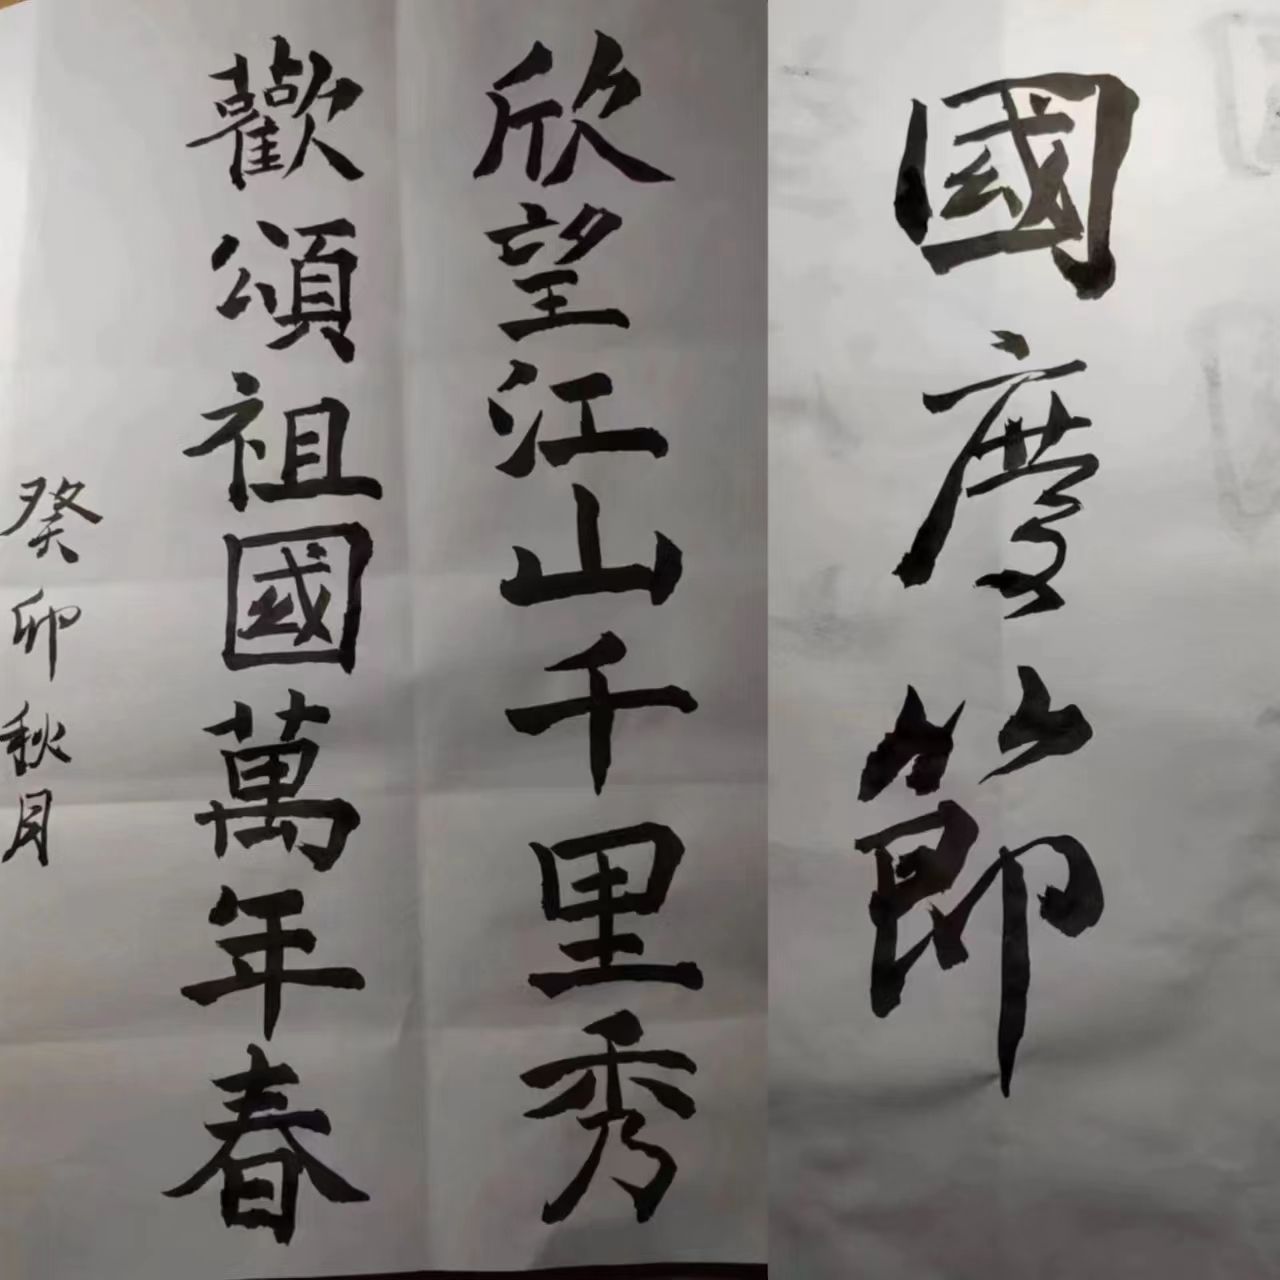 國慶節
欣望江山千里秀
歡頌祖國萬年春
癸卯秋月